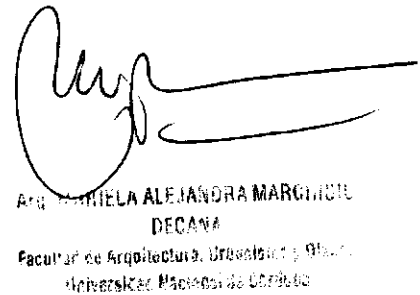 Arq. MARIELA ALEJANDRA
DECANA
Facultad de Arquitectura, Urbanismo y
Universidad Nacional de Córdoba